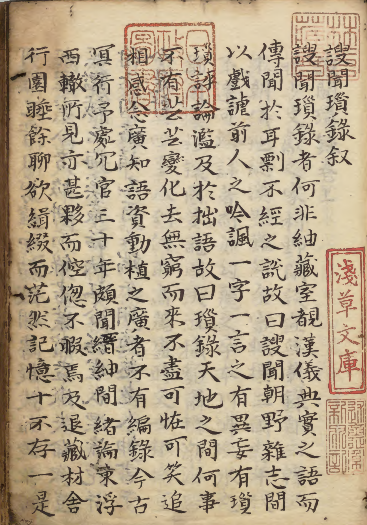 謏聞瑣錄叙
謏聞瑣錄者何非紬藏室覩漢儀典實之語而
傳聞於耳剽不經之說故曰謏聞朝野雜志間
以戲謔前人之吟諷一字一言之有異妄有瑣
瑣評論濫及於拙語故曰瑣錄天地之間何事
不有芸芸變化去無窮而來不盡可恠可笑追
相感念廣知語資動植之廣者不有編錄今古
冥行予處冗官三十年頗聞縉紳間緒論東浮
西轍所見亦甚夥而倥偬不暇焉及退藏材舍
行園睡餘聊欲緝綴而茫然記憶十不存一是
淺草文庫